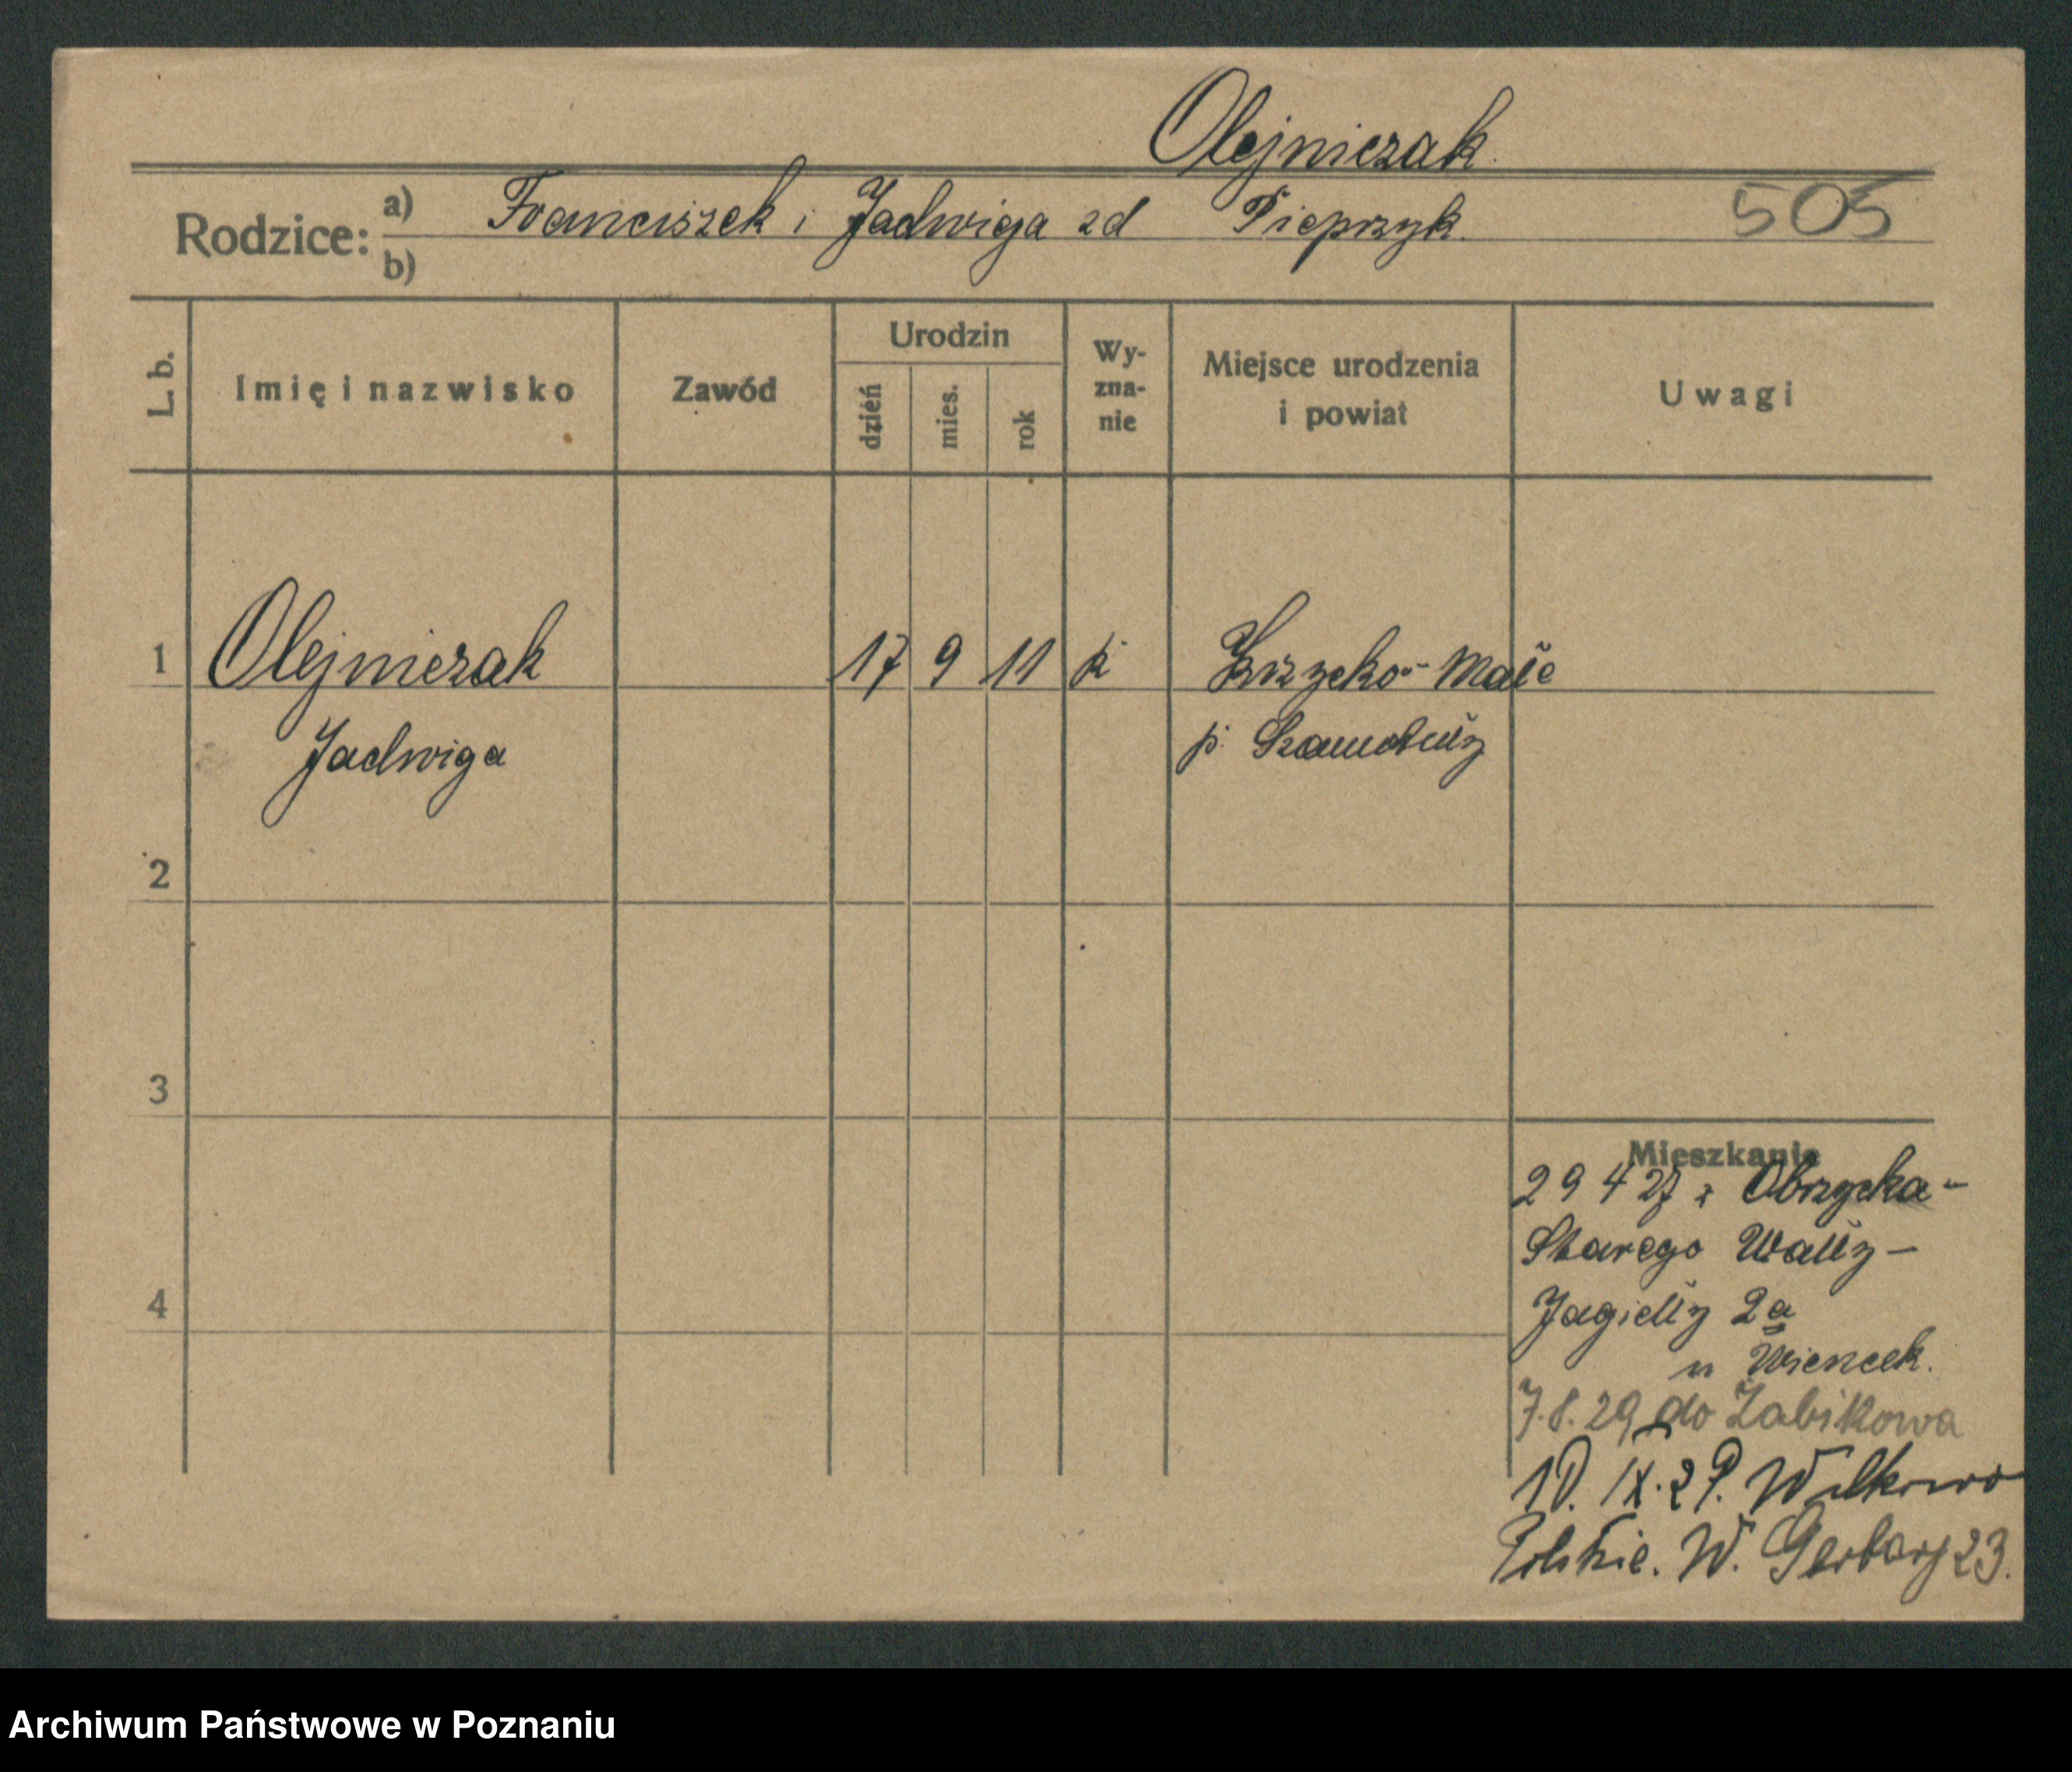 Olejniczak
Rodzice: a) Franciszek i Jadwiga zd Pieprzyk. 505
b)
L. b. Imię i nazwisko Zawód Urodzin dzień mies. rok Wy-zna-nie Miejsce urodzenia i powiat Uwagi
1 Olejniczak 17 9 11 k Krzycko-Małe
Jadwiga p. Szamotuły
2
3
Mieszkanie
29 4 27 z Obrzycka-
Starego Wally-
4 Jagiełły 2a
u Wiencek.
7.8.29 do Żabikowa
10. IX. 29. Wilkowo
Polskie. W. Garbary 23.
Archiwum Państwowe w Poznaniu